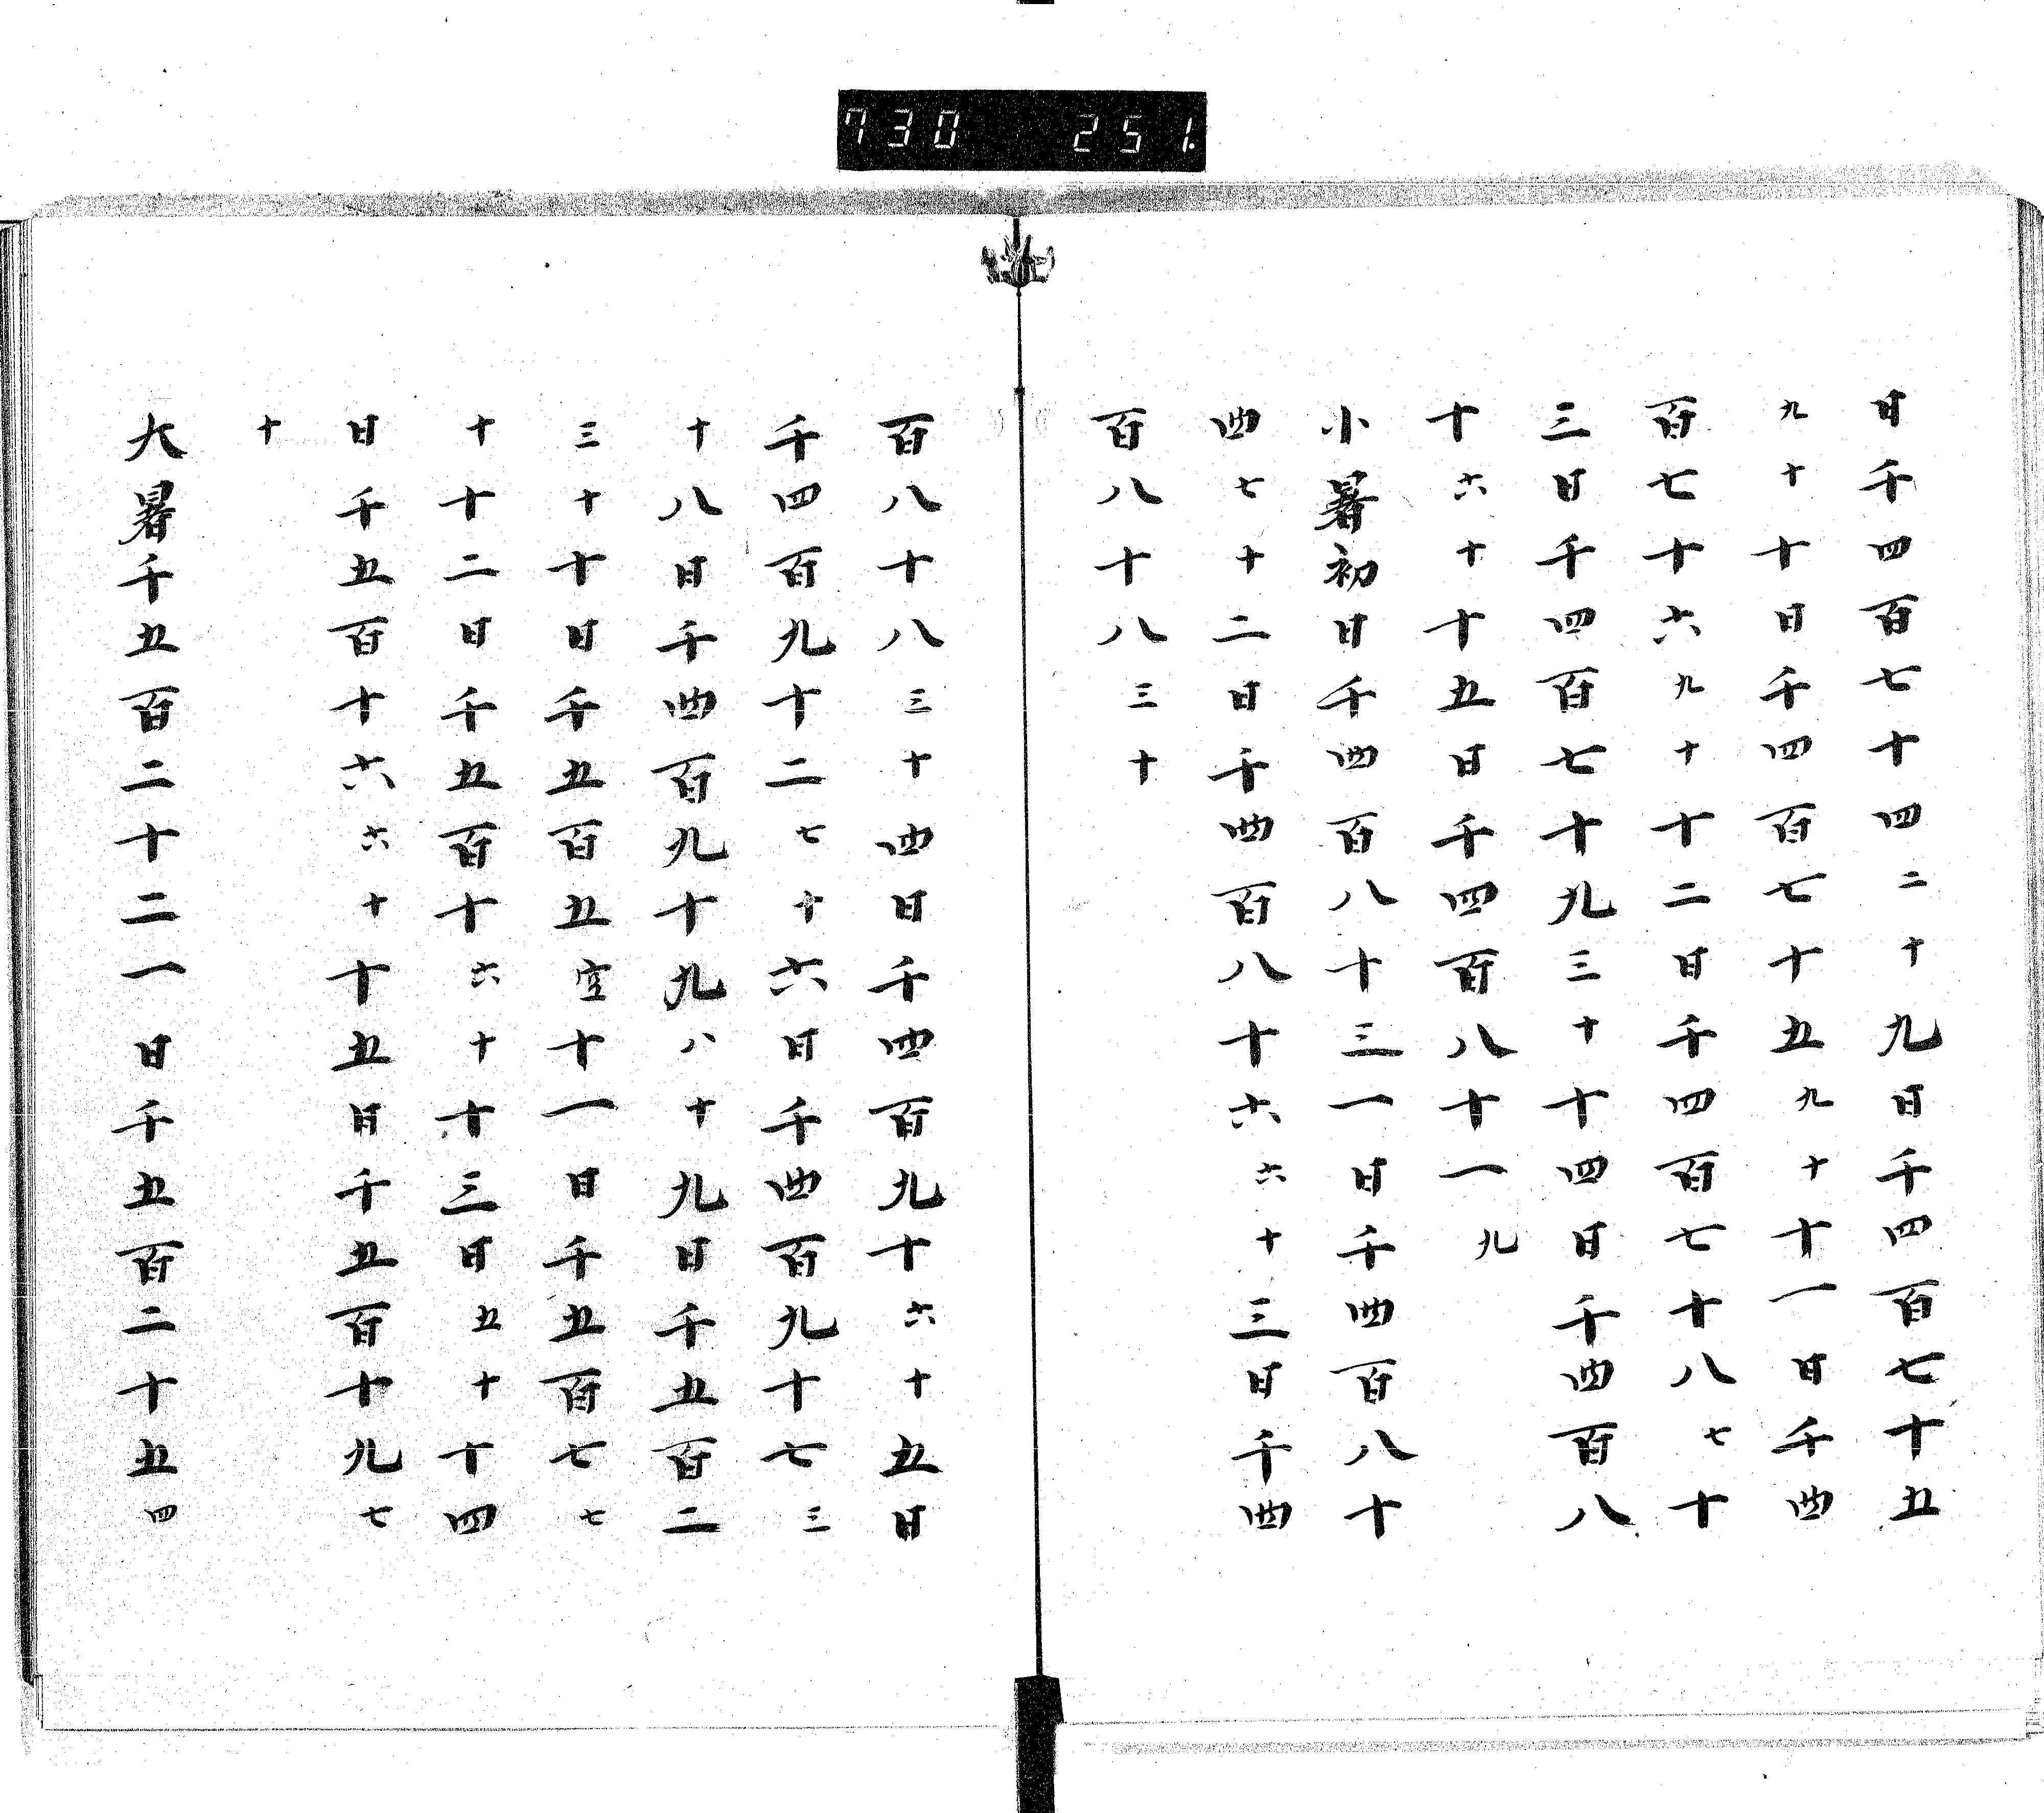 730 251.
日千四百七十四二十九日千四百七十五
九十十日千四百七十五九十十一日千四
百七十六九十十二日千四百七十八七十
三日千四百七十九三十十四日千四百八
十六十十五日千四百八十一九
小暑初日千四百八十三一日千四百八十
四七十二日千四百八十六六十三日千四
百八十八三十
百八十八三十四日千四百九十六十五日
千四百九十二七十六日千四百九十七三
十八日千四百九十九八十九日千五百二
三十十日千五百五空十一日千五百七七
十十二日千五百十六十十三日五十十四
日千五百十六六十十五日千五百十九七
十
大暑千五百二十二一日千五百二十五四